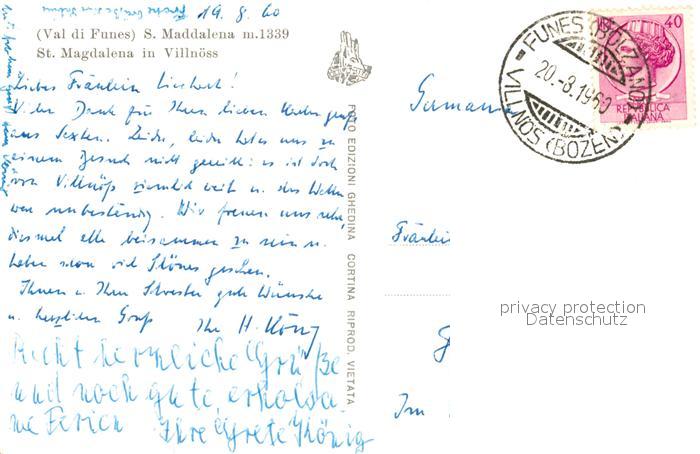 19. 8. 60
(Val di Funes) S. Maddalena m.1339
St. Magdalena in Villnöss
Liebes Fräulein
Vielen Dank für Ihren lieben Kartengruß
aus Sexten. Leider, leider hat es uns zu
einem Besuch nicht gereicht: es ist doch
von Villnöß ziemlich weit u. das Wetter
war unbeständig. Wir freuen uns sehr,
diesmal alle beisammen zu sein u.
haben schon viel Schönes gesehen.
Ihnen u. Ihrer Schwester gute Wünsche
u. herzlichen Gruß Ihr H. König
Recht herzliche Grüße
und noch gute, erholsa-
me Ferien Ihre Grete König
FOTO EDIZIONI GHEDINA CORTINA RIPROD. VIETATA
Germania
FUNES (BOLZANO)
20.-8.1960
VILLNÖS (BOZEN)
40
REPUBBLICA
ITALIANA
Fräulein
privacy protection
Datenschutz
G
Im